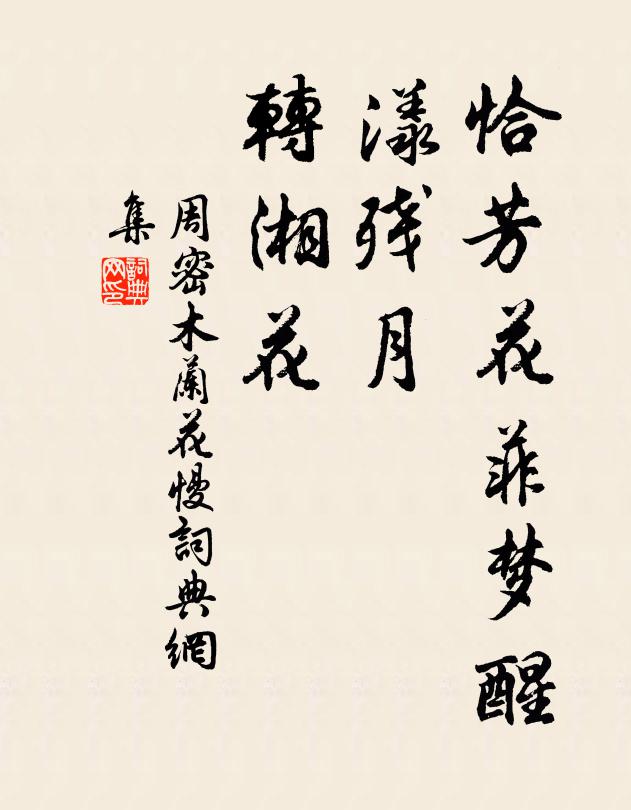 恰芳花菲梦醒
漾残月
轉湘花
周密木蘭花慢詞典網
集
詞典网印